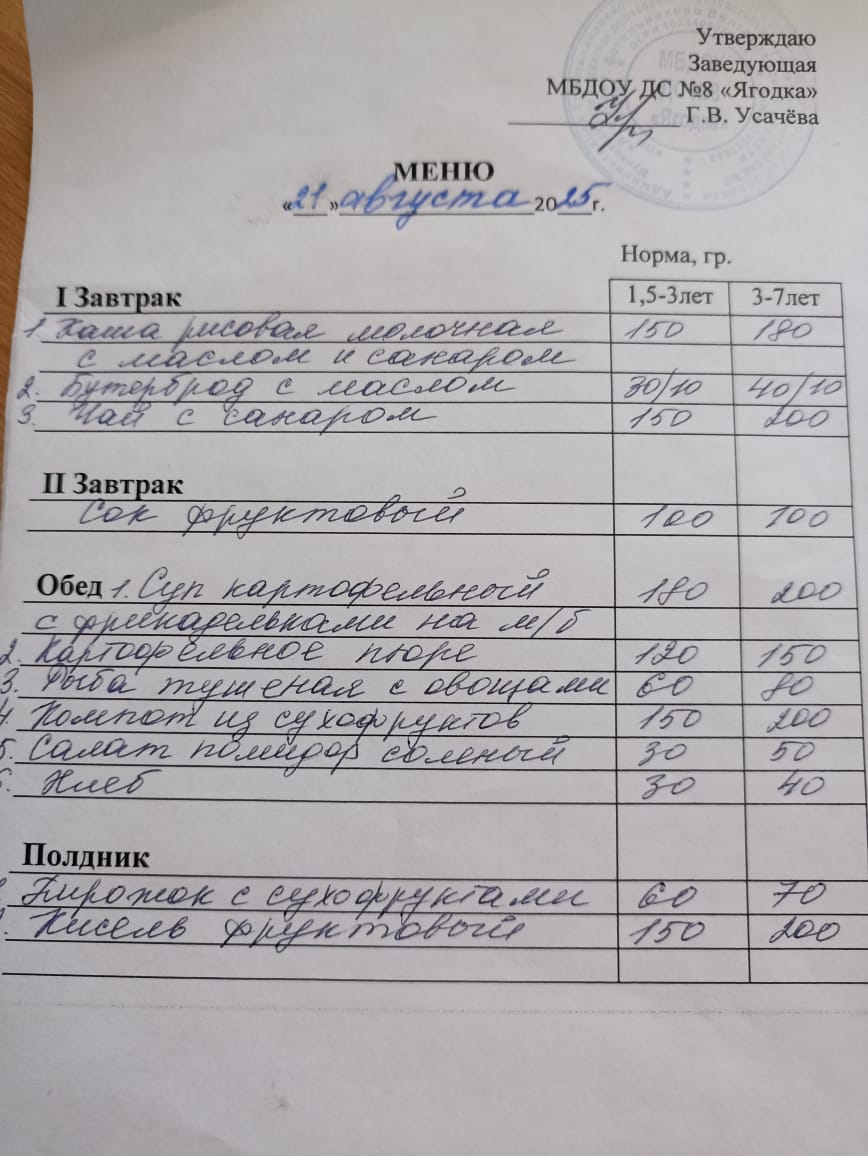 Утверждаю
Заведующая
МБДОУ ДС №8 «Ягодка»
Г.В. Усачёва
МЕНЮ
«21» августа 2025г.
Норма, гр.
I Завтрак 1,5-3лет 3-7лет
1. Каша рисовая молочная 150 180
с маслом и сахаром
2. Бутерброд с маслом 30/10 40/10
3. Чай с сахаром 150 200
II Завтрак
Сок фруктовый 100 100
Обед 1. Суп картофельный 180 200
с фрикадельками на м/б
2. Картофельное пюре 120 150
3. Рыба тушеная с овощами 60 80
4. Компот из сухофруктов 150 200
5. Салат помидор соленый 30 50
6. Хлеб 30 40
Полдник
Пирожок с сухофруктами 60 70
Кисель фруктовый 150 200